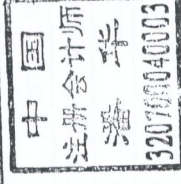 中国
注册会计师
潘华
320700040003